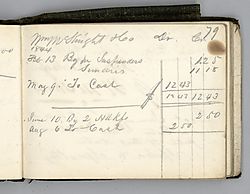 Wm McKnight & Co Dr. Cr. 79
1894
Feb 13 By Suspenders 1.25
Sundries 11.18
May 9. To Cash 12.43
12.43 12.43
June 10. By 2 2.50
Aug 6 To Cash 2.50